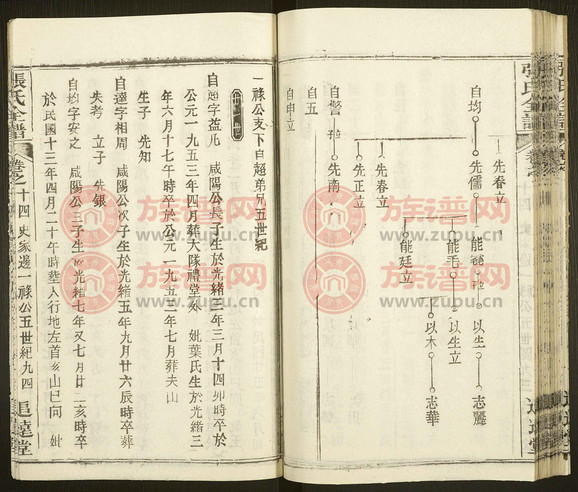 自均
先春立
先儒
能
能毛
能廷立
以生
以生立
以木
志麗
志華
自警
先春立
先正立
先南
自五
自申立
一祿公支下自超弟兄五世紀
廿世
自超字益凡 咸陽公長子生於光緒三年三月十四卯時卒於
公元一九五三年四月葬大隊禮堂外 妣葉氏生於光緒三
年六月十七午時卒於公元一九五三年七月葬夫山
生子 先知
自達字相周 咸陽公次子生於光緒五年九月廿六辰時卒葬
失考 立子 先銀
自均字安之 咸陽公三子生於光緒七年又七月廿二亥時卒
於民國十三年四月二十午時塟人行地左首亥山巳向 妣
張氏全譜
卷之十四 史家邊一祿公五世紀九四
追遠堂
族谱网
www.zupu.cn
族谱网
www.zupu.cn
族谱网
www.zupu.cn
族谱网
www.zupu.cn